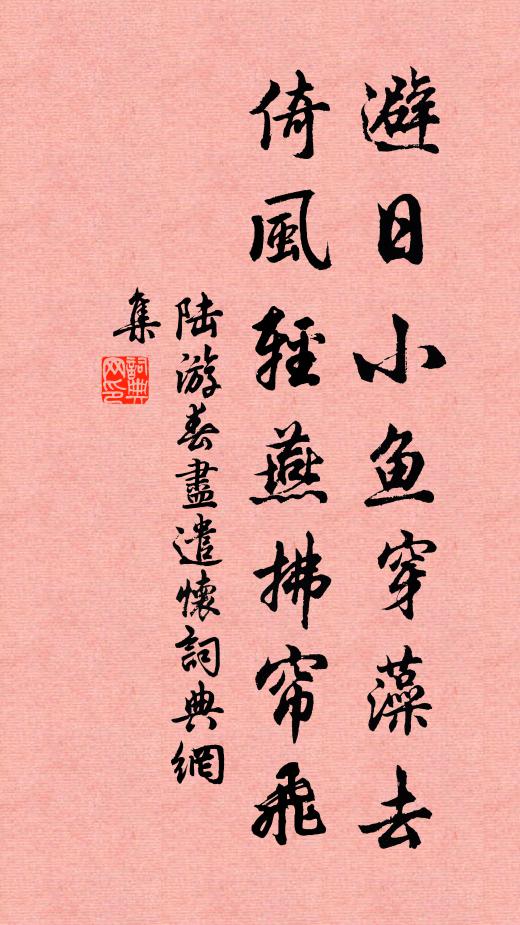 避日小魚穿藻去
倚風輕燕拂帘飛
陆游春盡遣懷詞典網
集
詞典
网印